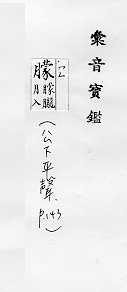 彙音寶鑑
朦朦朧
月月入
(公下平聲
P.143)